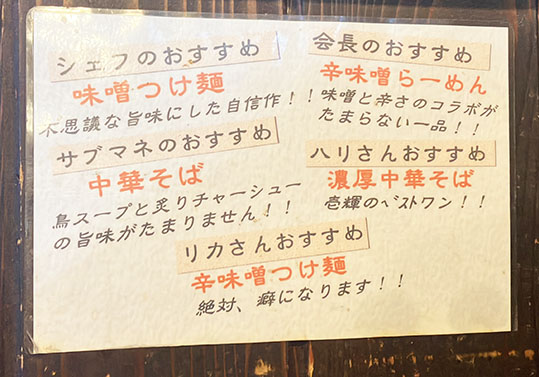 シェフのおすすめ
味噌つけ麺
不思議な旨味にした自信作！！
会長のおすすめ
辛味噌らーめん
味噌と辛さのコラボが
たまらない一品！！
サブマネのおすすめ
中華そば
鳥スープと炙りチャーシュー
の旨味がたまりません！！
ハリさんおすすめ
濃厚中華そば
壱輝のベストワン！！
リカさんおすすめ
辛味噌つけ麺
絶対、癖になります！！